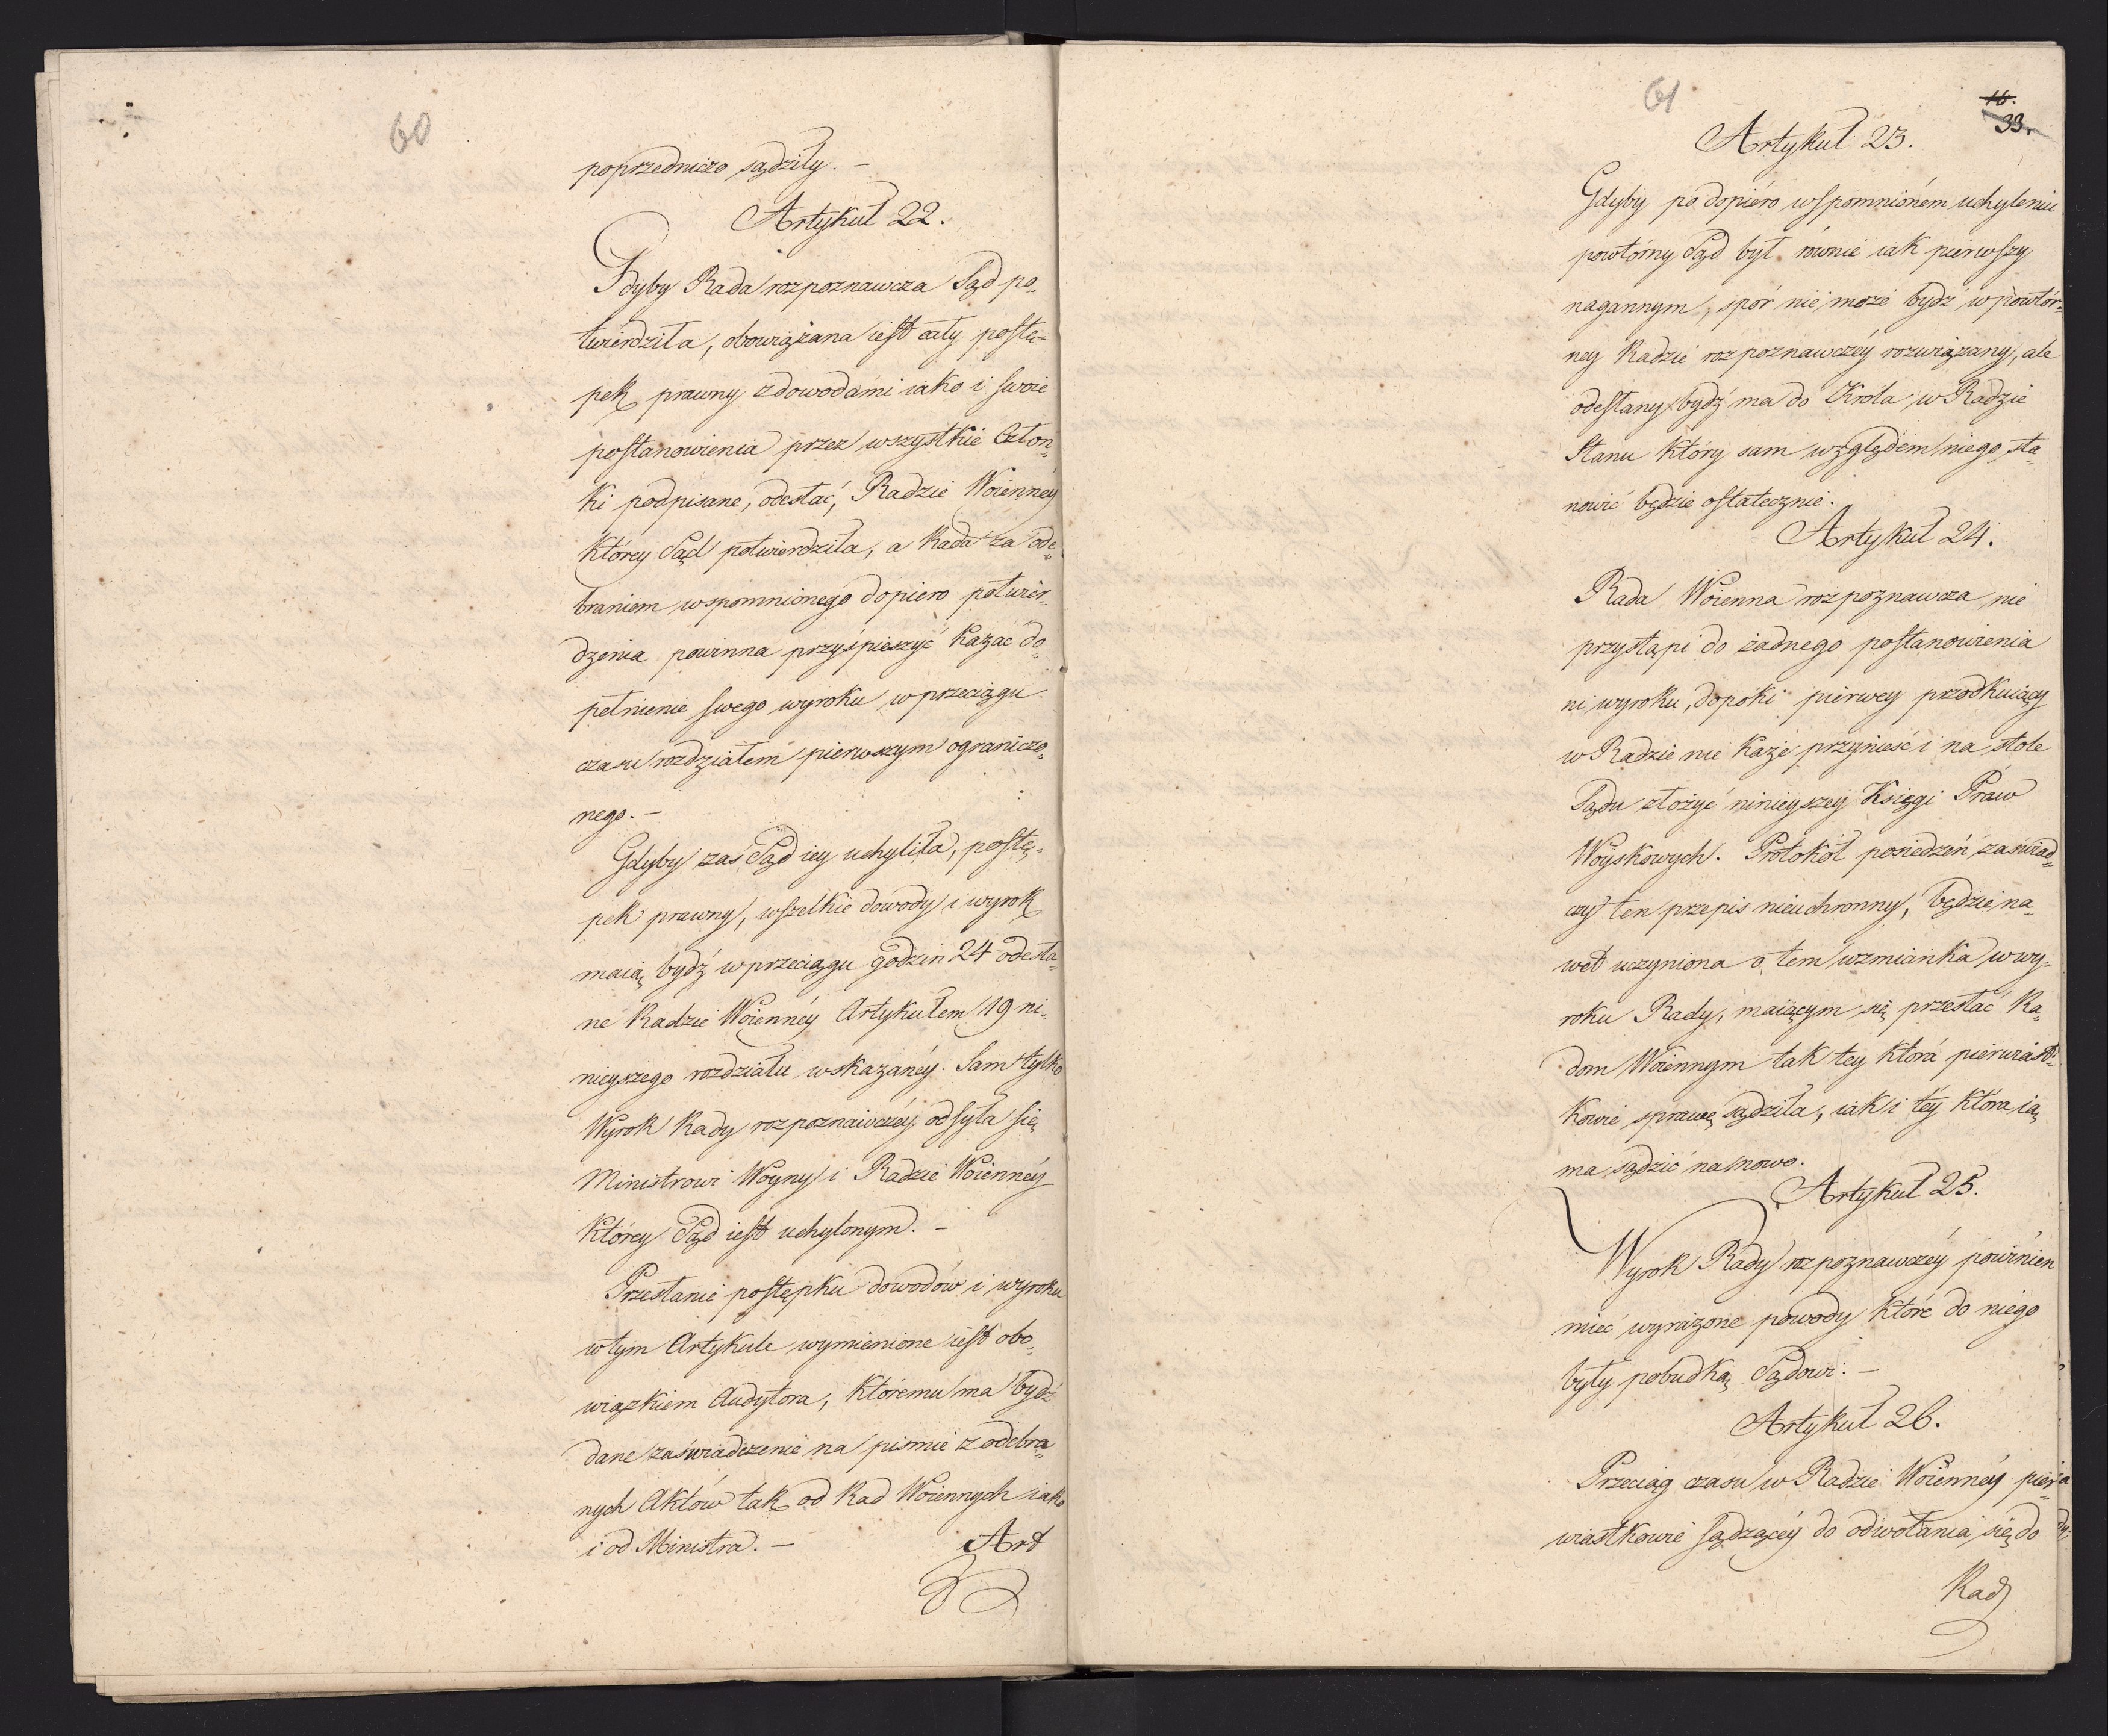 60
poprzedniczo sądziły. –
Artykuł 22.
Gdyby Rada rozpoznawcza Sąd po„
twierdziła, obowiązana iest cały postę„
pek prawny z dowodami iako i swoie
postanowienia przez wszystkie Człon„
ki podpisane, odesłać, Radzie Woienney
Którey Sąd potwierdziła, a Rada za ode„
braniem wspomnionego dopiero potwier„
dzenia powinna przyśpieszyć kazać do„
pełnienie swego wyroku w przeciągu
czasu rozdziałem pierwszym ograniczo„
nego. –
Gdyby zaś Sąd iey uchyliła, postę„
pek prawny, wszelkie dowody i wyrok
maią bydź w przeciągu godzin 24 odesła„
ne Radzie Woiennéy Artykułem 19 ni„
nieyszego rozdziału wskazanéy. Sam tylko
Wyrok Rady rozpoznawczéy odsyła się
Ministrowi Woyny i Radzie Woiennéy
Którey Sąd iest uchylonym. –
Przesłanie postępku dowodów i wyroku
w tym Artykule wymienione iest obo„
wiązkiem Audytora, Któremu ma bydź
dane zaświadczenie na piśmie z odebra„
nych Aktów tak od Rad Woiennych iako
i od Ministra. –
Art
61
18.
33.
Artykuł 23.
Gdyby po dopiéro wspomnioném uchyleniu
powtórny Sąd był równie iak pierwszy
nagannym, spór nie może bydź w powtór„
ney Radzie rozpoznawczéy rozwiązany, ale
odesłany bydź ma do Króla w Radzie
Stanu Który sam względem niego sta„
nowić będzie ostatecznie.
Artykuł 24.
Rada Woienna rozpoznawcza nie
przystąpi do żadnego postanowienia
ni wyroku, dopóki pierwey przodkuiący
w Radzie nie każe przynieść i na stole
Sądu złożyć ninieyszey Księgi Praw
Woyskowych. Protokół posiedzeń zaświad„
czy ten przepis nieuchronny, będzie na„
wet uczyniona o tem wzmianka w wy„
roku Rady, maiącym się przesłać Ra„
dom Woiennym tak tey która pierwiast„
kowie sprawę sądziła, iak i téy która ią
ma sądzić na nowo.
Artykuł 25.
Wyrok Rady rozpoznawczéy powinien
mieć wyrażone powody które do niego
były pobudką Sądowi. –
Artykuł 26.
Przeciąg czasu w Radzie Woiennéy pier„
wiastkowie sądzącéy do odwołania się do
Rad